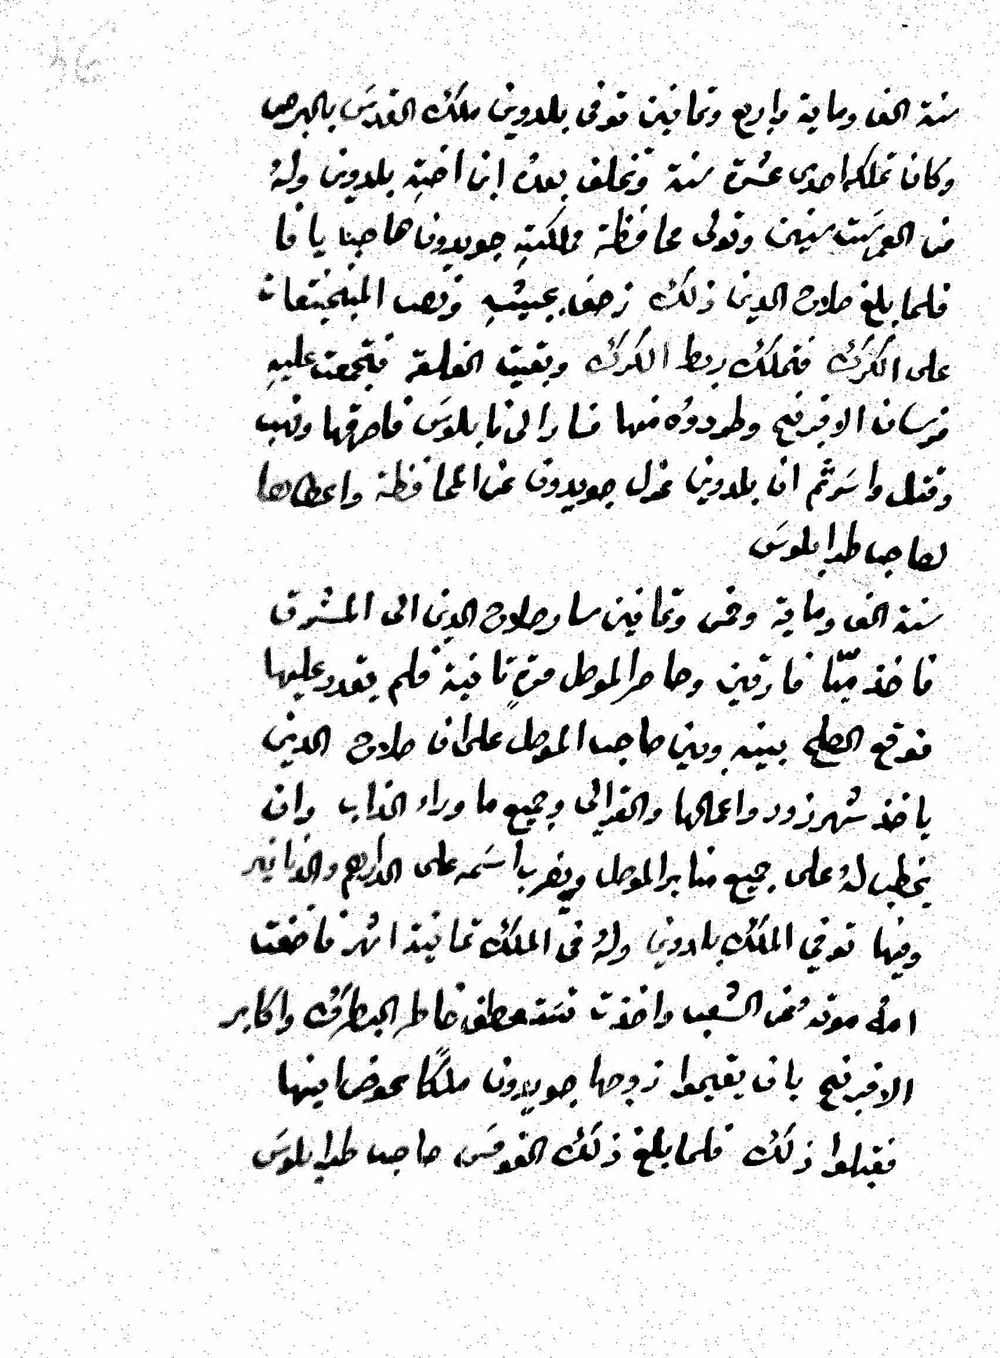 سنة الف وماية واربع وثمانين توفى بلدوين ملك القدس بالبرص
وكان تملكه احدى عشرة سنة وتخلف بعدهُ ابن اختِهِ بلدوين ولهُ
من العمر ست سنين وتولى محافظة مملكتهِ جويدون صاحب يافا
فلما بلغ صلاح الدين ذلك زحف بجيشهِ ونصب المنجنيقات
على الكرك فتملك ربط الكرك وبقيت القلعة فتجمعت عليهِ
فرسان الافرنج وطردوُه منها فسار الى نابلوس فاحرقها ونهب
وقتل واسَر ثم ان بلدوين عزل جويدون عن المحافظة واعطاها
لصاحب طرابلوس
سنة الف وماية وخمس وثمانين سار صلاح الدين الى المشرق
فاخذ ميّا فارقين وحاصر الموصل مرةٍ ثانية فلم يقدر عليها
فوقع الصلح بينه وبين صاحب الموصل على ان صلاح الدين
ياخذ شهرزور واعمالها والقرابلى وجميع ما وراء الذاب وان
يخطب لهُ على جميع منابر الموصل ويضرب اسمه على الدراهم والدنانير
وفيها توفي الملك بلدوين ولهُ فى الملك ثمانية اشهر فاخفت
امهُ موته عن الشعب واخذت تستعطف خاطر البطرك واكابر
الافرنج بان يقيموا زوجها جويدون ملكًا عوض ابنها
فقبلوا ذلك فلما بلغ ذلك القومس صاحب طرابلوس